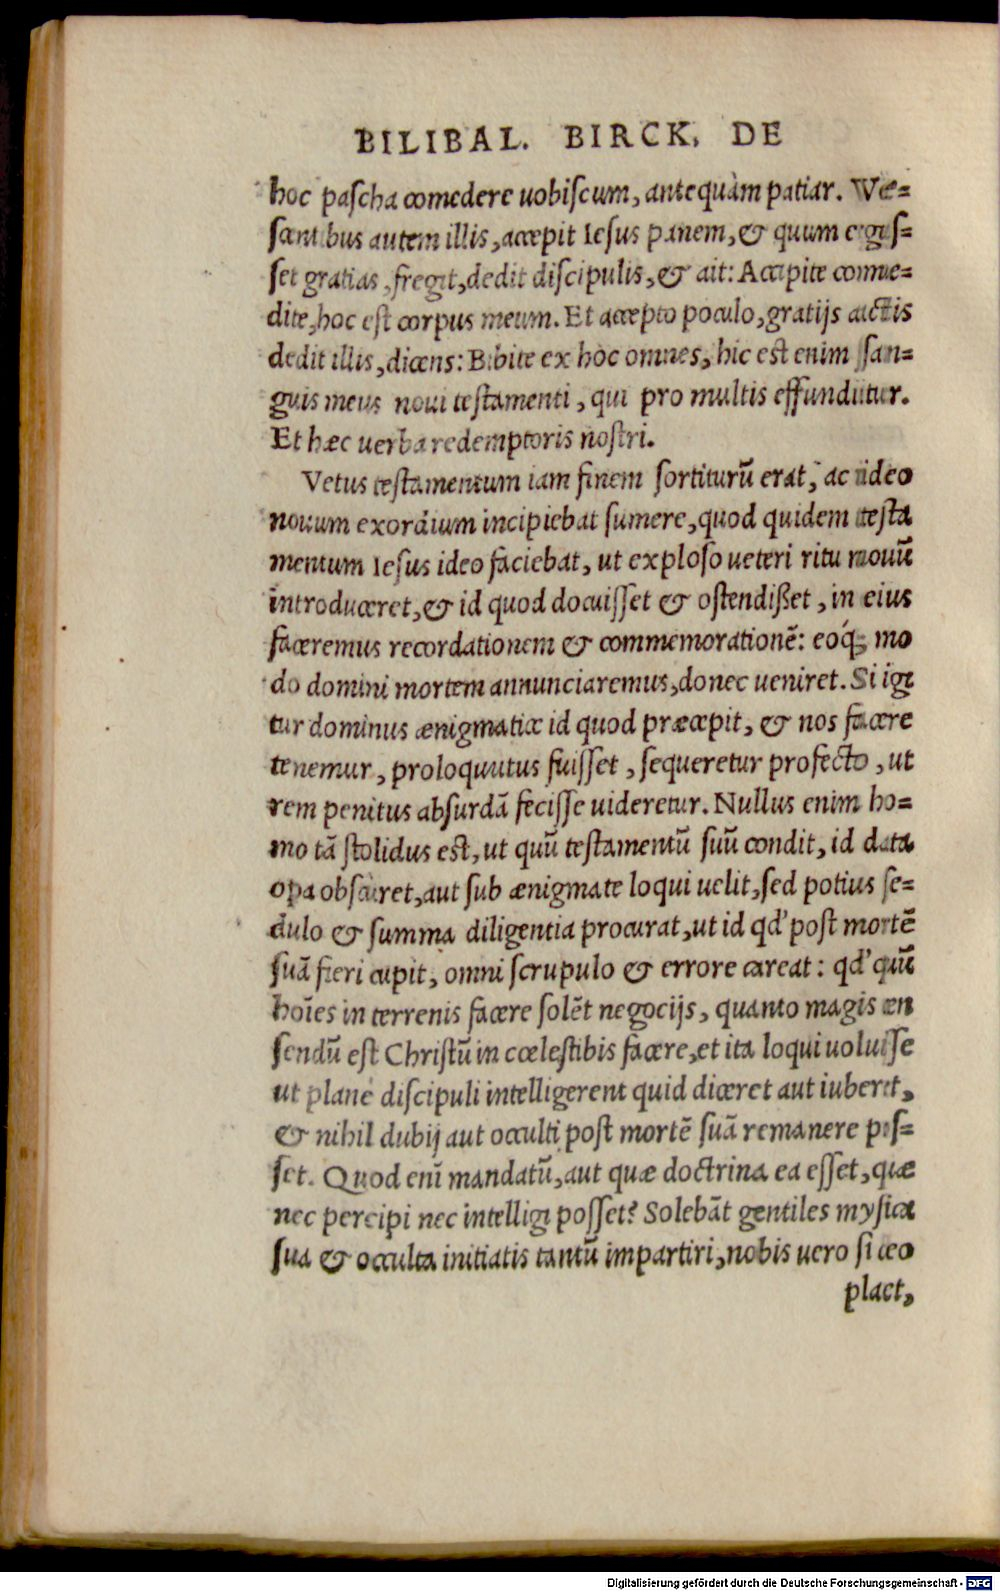 BILIBAL. BIRCK. DE
hoc pascha comedere uobiscum, antequàm patiar. Ve=
scentibus autem illis, accepit Iesus panem, & quum egis=
set gratias, fregit, dedit discipulis, & ait: Accipite come=
dite, hoc est corpus meum. Et accepto poculo, gratijs actis
dedit illis, dicens: Bibite ex hoc omnes, hic est enim san=
guis meus noui testamenti, qui pro multis effundutur.
Et hæc uerba redemptoris nostri.
Vetus testamentum iam finem sortiturū erat, ac ideo
nouum exordium incipiebat sumere, quod quidem testa
mentum Iesus ideo faciebat, ut exploso ueteri ritu nouū
introduceret, & id quod docuisset & ostendißet, in eius
faceremus recordationem & commemorationē: eoq́; mo
do domini mortem annunciaremus, donec ueniret. Si igi
tur dominus ænigmatice id quod præcepit, & nos facere
tenemur, proloquutus fuisset, sequeretur profecto, ut
rem penitus absurdā fecisse uideretur. Nullus enim ho=
mo tā stolidus est, ut quū testamentū suū condit, id data
opa obscuret, aut sub ænigmate loqui uelit, sed potius se=
dulo & summa diligentia procurat, ut id qd' post mortē
suā fieri cupit, omni scrupulo & errore careat: qd' quū
hoīes in terrenis facere solēt negocijs, quanto magis cen
sendū est Christū in cœlestibis facere, et ita loqui uoluisse
ut plane discipuli intelligerent quid diceret aut iuberet,
& nihil dubij aut occulti post mortē suā remanere pos=
set. Quod enī mandatū, aut quæ doctrina ea esset, quæ
nec percipi nec intelligi posset? Solebāt gentiles mysica
sua & occulta initiatis tantū impartiri, nobis uero si ceo
plact,
Digitalisierung gefördert durch die Deutsche Forschungsgemeinschaft - DFG